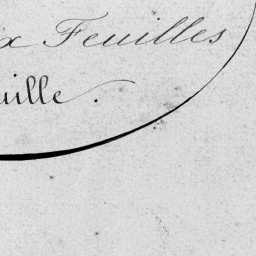 x Feuilles
uille.